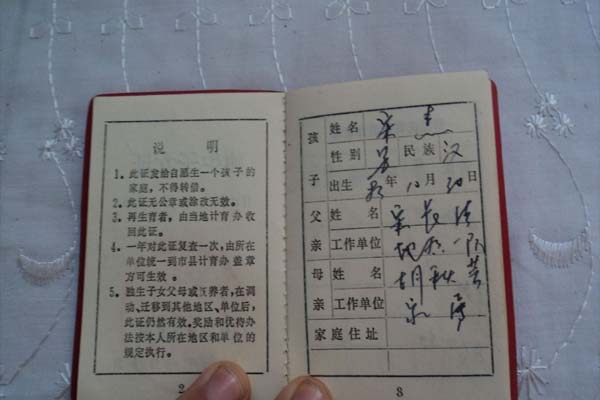 说 明
1. 此证发给自愿生一个孩子的
家庭，不得转借。
2. 此证无公章或涂改无效。
3. 再生育者，由当地计育办收
回此证。
4. 一年对此证复查一次，由所在
单位统一到市县计育办盖章
方可生效。
5. 独生子女父母或抚养者，在调
动、迁移到其他地区、单位后，
此证仍然有效。奖励和优待办
法按本人所在地区和单位的
规定执行。
2
孩子
姓名 宋
性别 男 民族 汉
出生 年 10 月 30 日
父亲
姓名 宋
工作单位
母亲
姓名 胡秋
工作单位
家庭住址
3